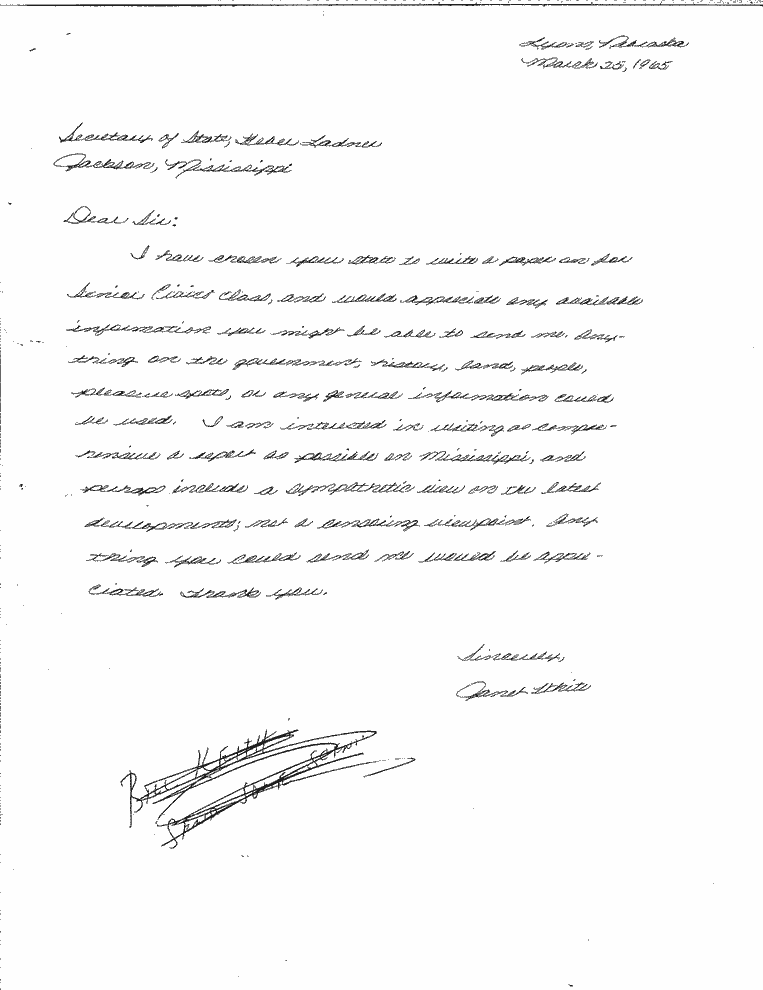 Lyons, Nebraska
March 25, 1965
Secretary of State, Heber Ladner
Jackson, Mississippi
Dear Sir:
I have chosen your state to write a paper on for
Senior Civics Class, and would appreciate any available
information you might be able to send me. Any-
thing on the government, history, land, people,
pleasure spots, or any general information could
be used. I am interested in writing as compre-
hensive a report as possible on Mississippi, and
perhaps include a sympathetic view on the latest
developments; not a censoring viewpoint. Any
thing you could send me would be appre-
ciated. Thank you.
Sincerely,
Janet White
Bill Keith